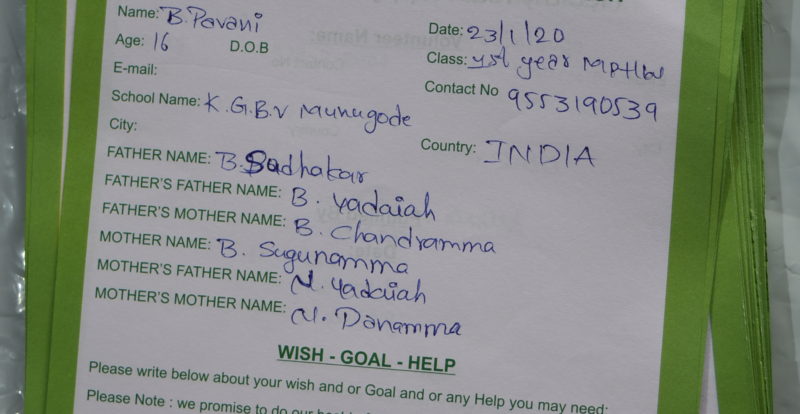 Name: B. Pavani
Date: 23/1/20
Age: 16 D.O.B
Class: 1st year MPHW
E-mail:
Contact No 9553190539
School Name: K.G.B.V Munugode
City:
Country: INDIA
FATHER NAME: B. Sudhakar
FATHER'S FATHER NAME: B. Yadaiah
FATHER'S MOTHER NAME: B. Chandramma
MOTHER NAME: B. Sugunamma
MOTHER'S FATHER NAME: N. Yadaiah
MOTHER'S MOTHER NAME: N. Danamma
WISH - GOAL - HELP
Please write below about your wish and or Goal and or any Help you may need:
Please Note : we promise to do our